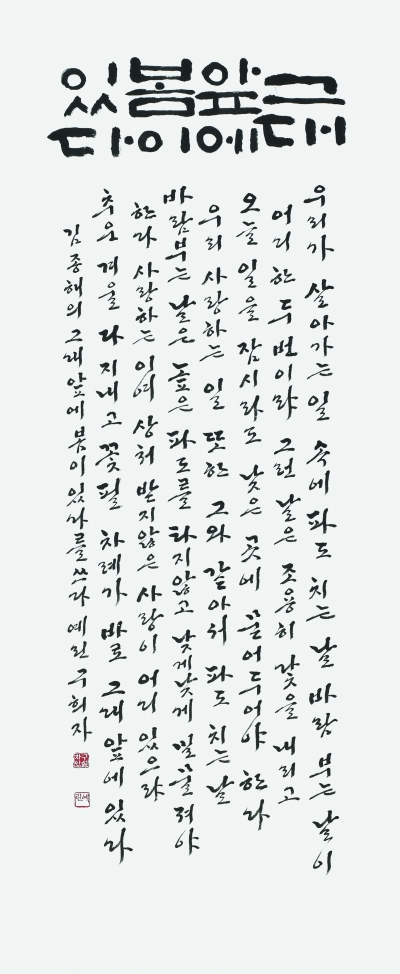 그대 앞에 봄이 있다
우리가 살아가는 일 속에 파도 치는 날 바람 부는 날이
어디 한 두 번이랴 그런 날은 조용히 닻을 내리고
오늘 일을 잠시라도 낮은 곳에 묻어두어야 한다
우리 사랑하는 일 또한 그와 같아서 파도 치는 날
바람부는 날은 높은 파도를 타지않고 낮게낮게 밀물져야
한다 사랑하는 이여 상처 받지않은 사랑이 어디 있으랴
추운 겨울 다 지내고 꽃필 차례가 바로 그대 앞에 있다
김종해의 그대 앞에 봄이 있다를 쓰다 예린 구희자